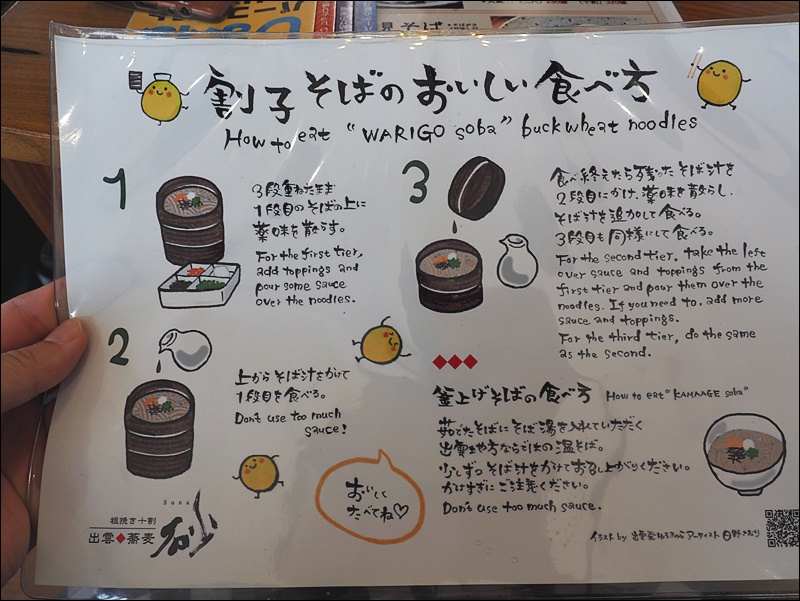 見そば
割子そばのおいしい食べ方
How to eat "WARIGO soba" buckwheat noodles
1
3段重ねたまま
1段目のそばの上に
薬味を散らす。
For the first tier,
add toppings and
pour some sauce
over the noodles.
2
上からそば汁をかけて
1段目を食べる。
Don't use too much
sauce!
3
食べ終えたら残ったそば汁を
2段目にかけ、薬味を散らし、
そば汁を追加して食べる。
3段目も同様にして食べる。
For the second tier, take the left
over sauce and toppings from the
first tier and pour them over the
noodles. If you need to, add more
sauce and toppings.
For the third tier, do the same
as the second.
釜上げそばの食べ方 How to eat "KAMAAGE soba"
茹でたそばにそば湯を入れていただく
出雲地方ならではの温そば。
少しずつそば汁をかけてお召し上がりください。
かけすぎにご注意ください。
Don't use too much sauce.
おいしく
たべてね♡
Suna
粗挽き十割
出雲◆蕎麦
イラスト by
アーティスト 日野さおり